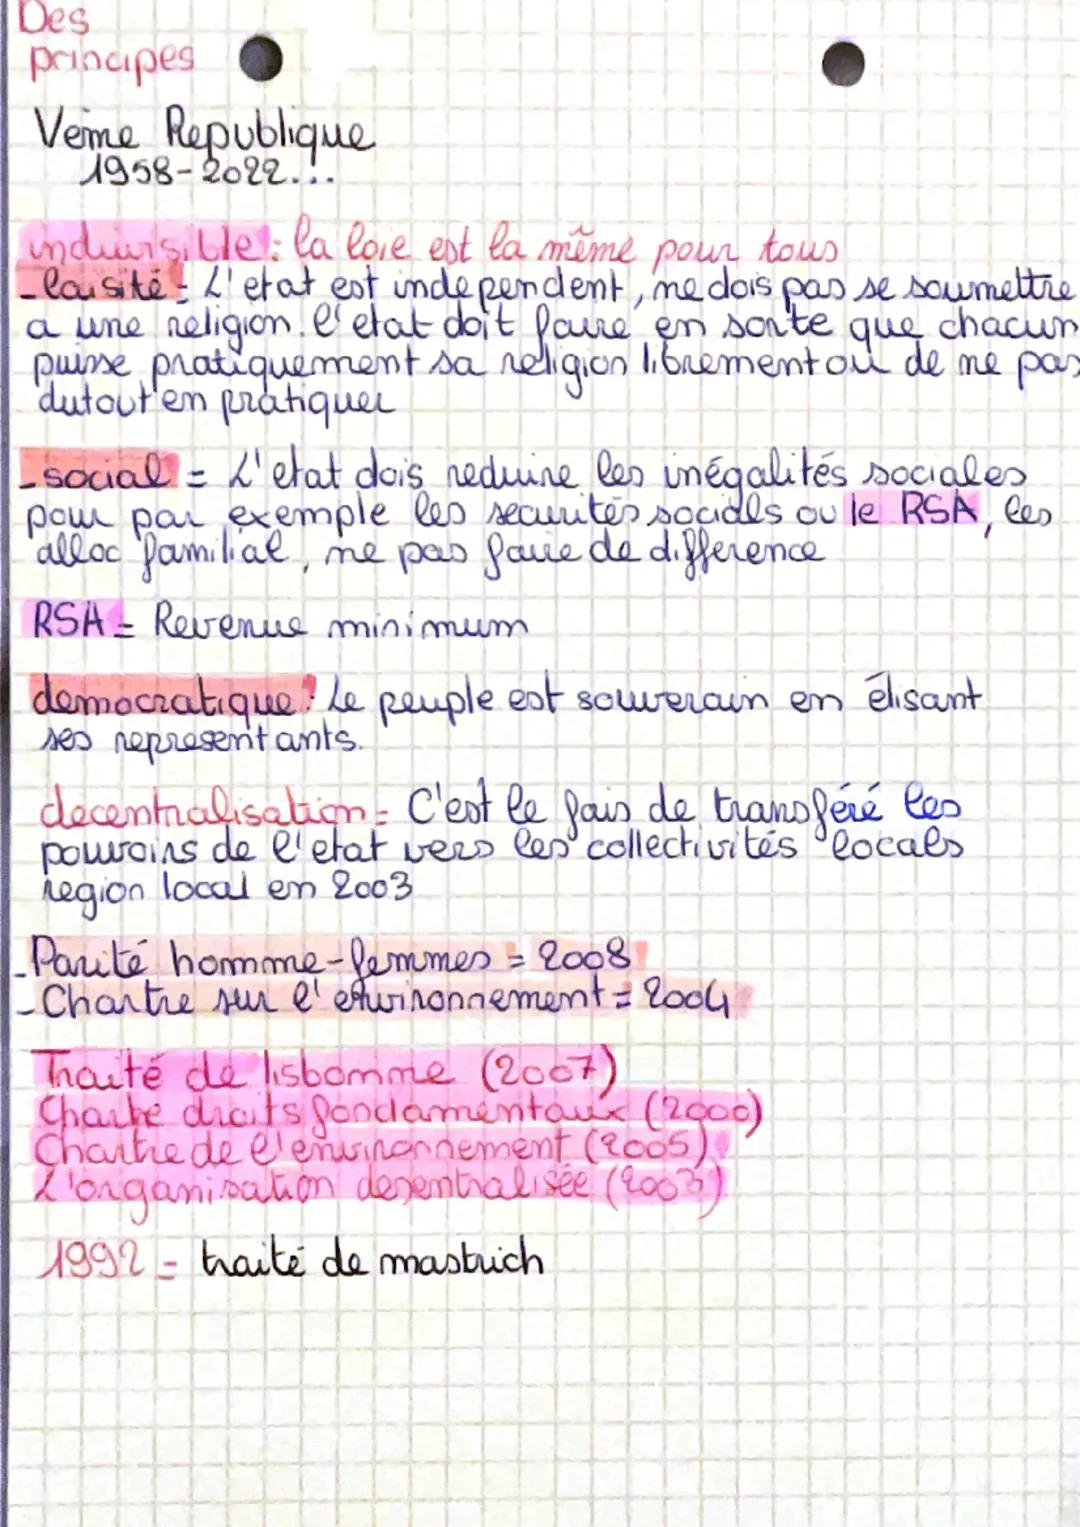 Des
principes
Veme Republique
1958-2022...
indivisible : la loie est la même pour tous
- laisité = L'etat est independent, ne dois pas se soumettre
a une religion. l'etat doit faire en sorte que chacun
puisse pratiquement sa religion librement ou de ne pas
dutout en pratiquer
- social = L'etat dois reduire les inégalités sociales
pour par exemple les securités socials ou le RSA, les
alloc familial, ne pas faire de difference
RSA = Revenue minimum
democratique : Le peuple est souverain en élisant
ses representants.
decentralisation = C'est le fais de transféré les
pouvoirs de l'etat vers les collectivités locals
region local en 2003
- Parité homme-femmes = 2008
- Chartre sur l'environnement = 2004
Traité de lisbonne (2007)
Charte droits fondamentaux (2000)
Chartre de l'environnement (2005)
L'organisation desentralisée (2003)
1992 = traité de mastrich